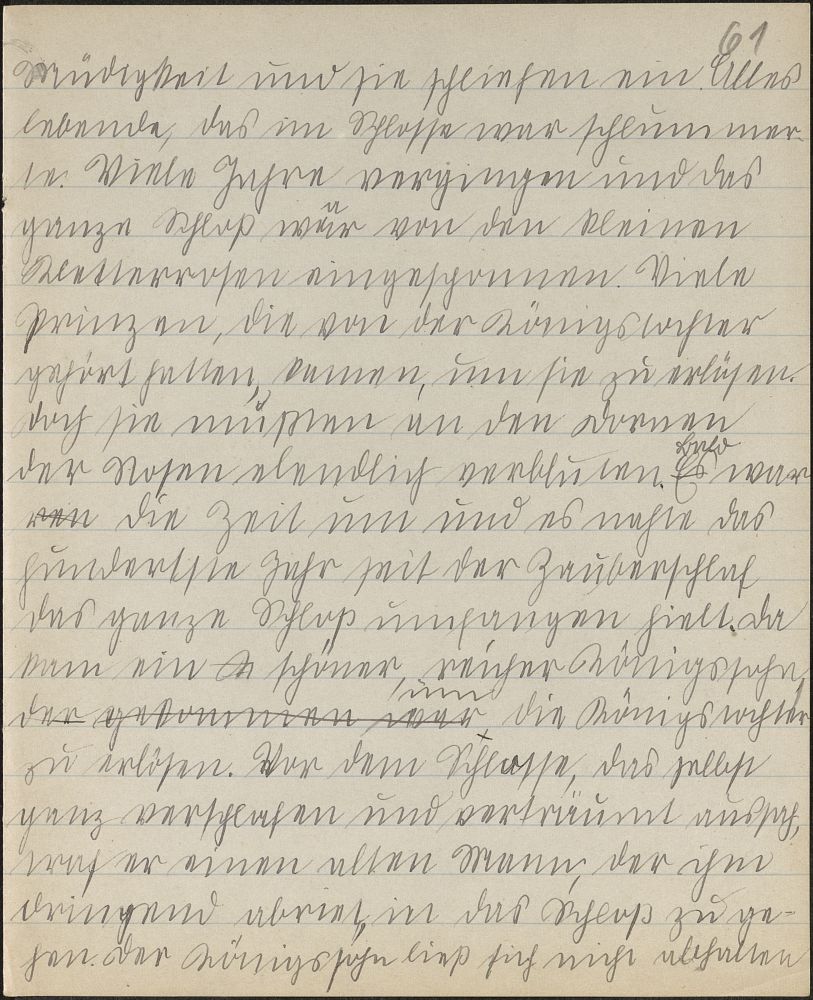 61
Müdigkeit und sie schliefen ein. Alles
lebende, das im Schlosse war schlummer-
te. Viele Jahre vergingen und das
ganze Schloß war von den kleinen
Kletterrosen eingesponnen. Viele
Prinzen, die von der Königstochter
gehört hatten, kamen, um sie zu erlösen.
Doch sie mußten an den Dornen
der Rosen elendlich verbluten. Es Bald war
ren die Zeit um und es nahte das
hundertste Jahr seit der Zauberschlaf
das ganze Schloß umfangen hielt. Da
kam ein K schöner, reicher Königssohn,
der gekommen war um die Königstochter
zu erlösen. Vor dem Schlosse, das selbst
ganz verschlafen und verträumt aussah,
traf er einen alten Mann, der ihm
dringend abriet, in das Schloß zu ge-
hen. Der Königssohn ließ sich nicht abhalten